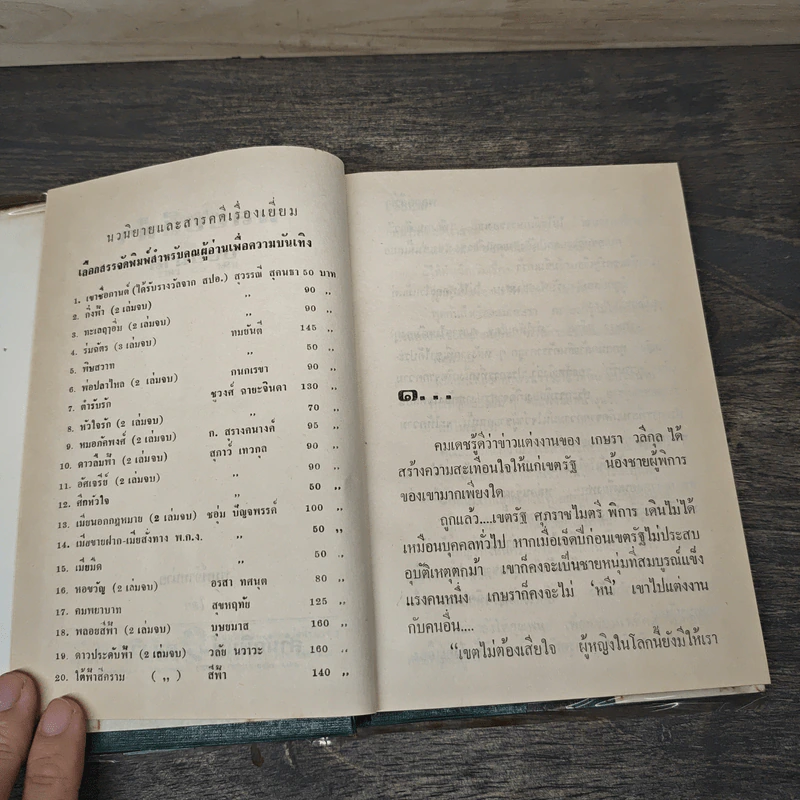 นวนิยายและสารคดีเรื่องเยี่ยม
เลือกสรรจัดพิมพ์สำหรับคุณผู้อ่านเพื่อความบันเทิง
1. เขาชื่อกานต์ (ได้รับรางวัลจาก สปอ.) สุวรรณี สุคนธา 50 บาท
2. กิ่งฟ้า (2 เล่มจบ) ,, 90 ,,
3. ทะเลฤาอิ่ม (2 เล่มจบ) ,, 90 ,,
4. ร่มฉัตร (3 เล่มจบ) ทมยันตี 145 ,,
5. พิษสวาท ,, 50 ,,
6. พ่อปลาไหล (2 เล่มจบ) กนกเรขา 90 ,,
7. ตำรับรัก ชูวงศ์ ฉายะจินดา 130 ,,
8. หัวใจรัก (2 เล่มจบ) ,, 70 ,,
9. หมอภัคพงศ์ (2 เล่มจบ) ก. สุรางคนางค์ 95 ,,
10. ดาวลืมฟ้า (2 เล่มจบ) สุภาว์ เทวกุล 90 ,,
11. อัศเจรีย์ (2 เล่มจบ) ,, 90 ,,
12. ศึกหัวใจ ,, 50 ,,
13. เมียนอกกฎหมาย (2 เล่มจบ) ชอุ่ม ปัญจพรรค์ 100 ,,
14. เมียขายฝาก-เมียสั่งทาง พ.ก.ง. ,, 50 ,,
15. เมียมืด ,, 50 ,,
16. หอขวัญ (2 เล่มจบ) อรสา ทศนุต 80 ,,
17. คมพยาบาท สุขหฤทัย 125 ,,
18. พลอยสีฟ้า (2 เล่มจบ) บุษยมาส 160 ,,
19. ดาวประดับฟ้า (2 เล่มจบ) วลัย นวาระ 160 ,,
20. ใต้ฟ้าสีคราม ( ,, ) สีฟ้า 140 ,,
๑...
คมเดชรู้ดีว่าข่าวแต่งงานของ เกษรา วลีกุล ได้
สร้างความสะเทือนใจให้แก่เขตรัฐ น้องชายผู้พิการ
ของเขามากเพียงใด
ถูกแล้ว....เขตรัฐ ศุภราชไมตรี พิการ เดินไม่ได้
เหมือนบุคคลทั่วไป หากเมื่อเจ็ดปีก่อนเขตรัฐไม่ประสบ
อุบัติเหตุตกม้า เขาก็คงจะเป็นชายหนุ่มที่สมบูรณ์แข็ง
แรงคนหนึ่ง เกษราก็คงจะไม่ ‘หนี’ เขาไปแต่งงาน
กับคนอื่น....
“เขตไม่ต้องเสียใจ ผู้หญิงในโลกนี้ยังมีให้เรา